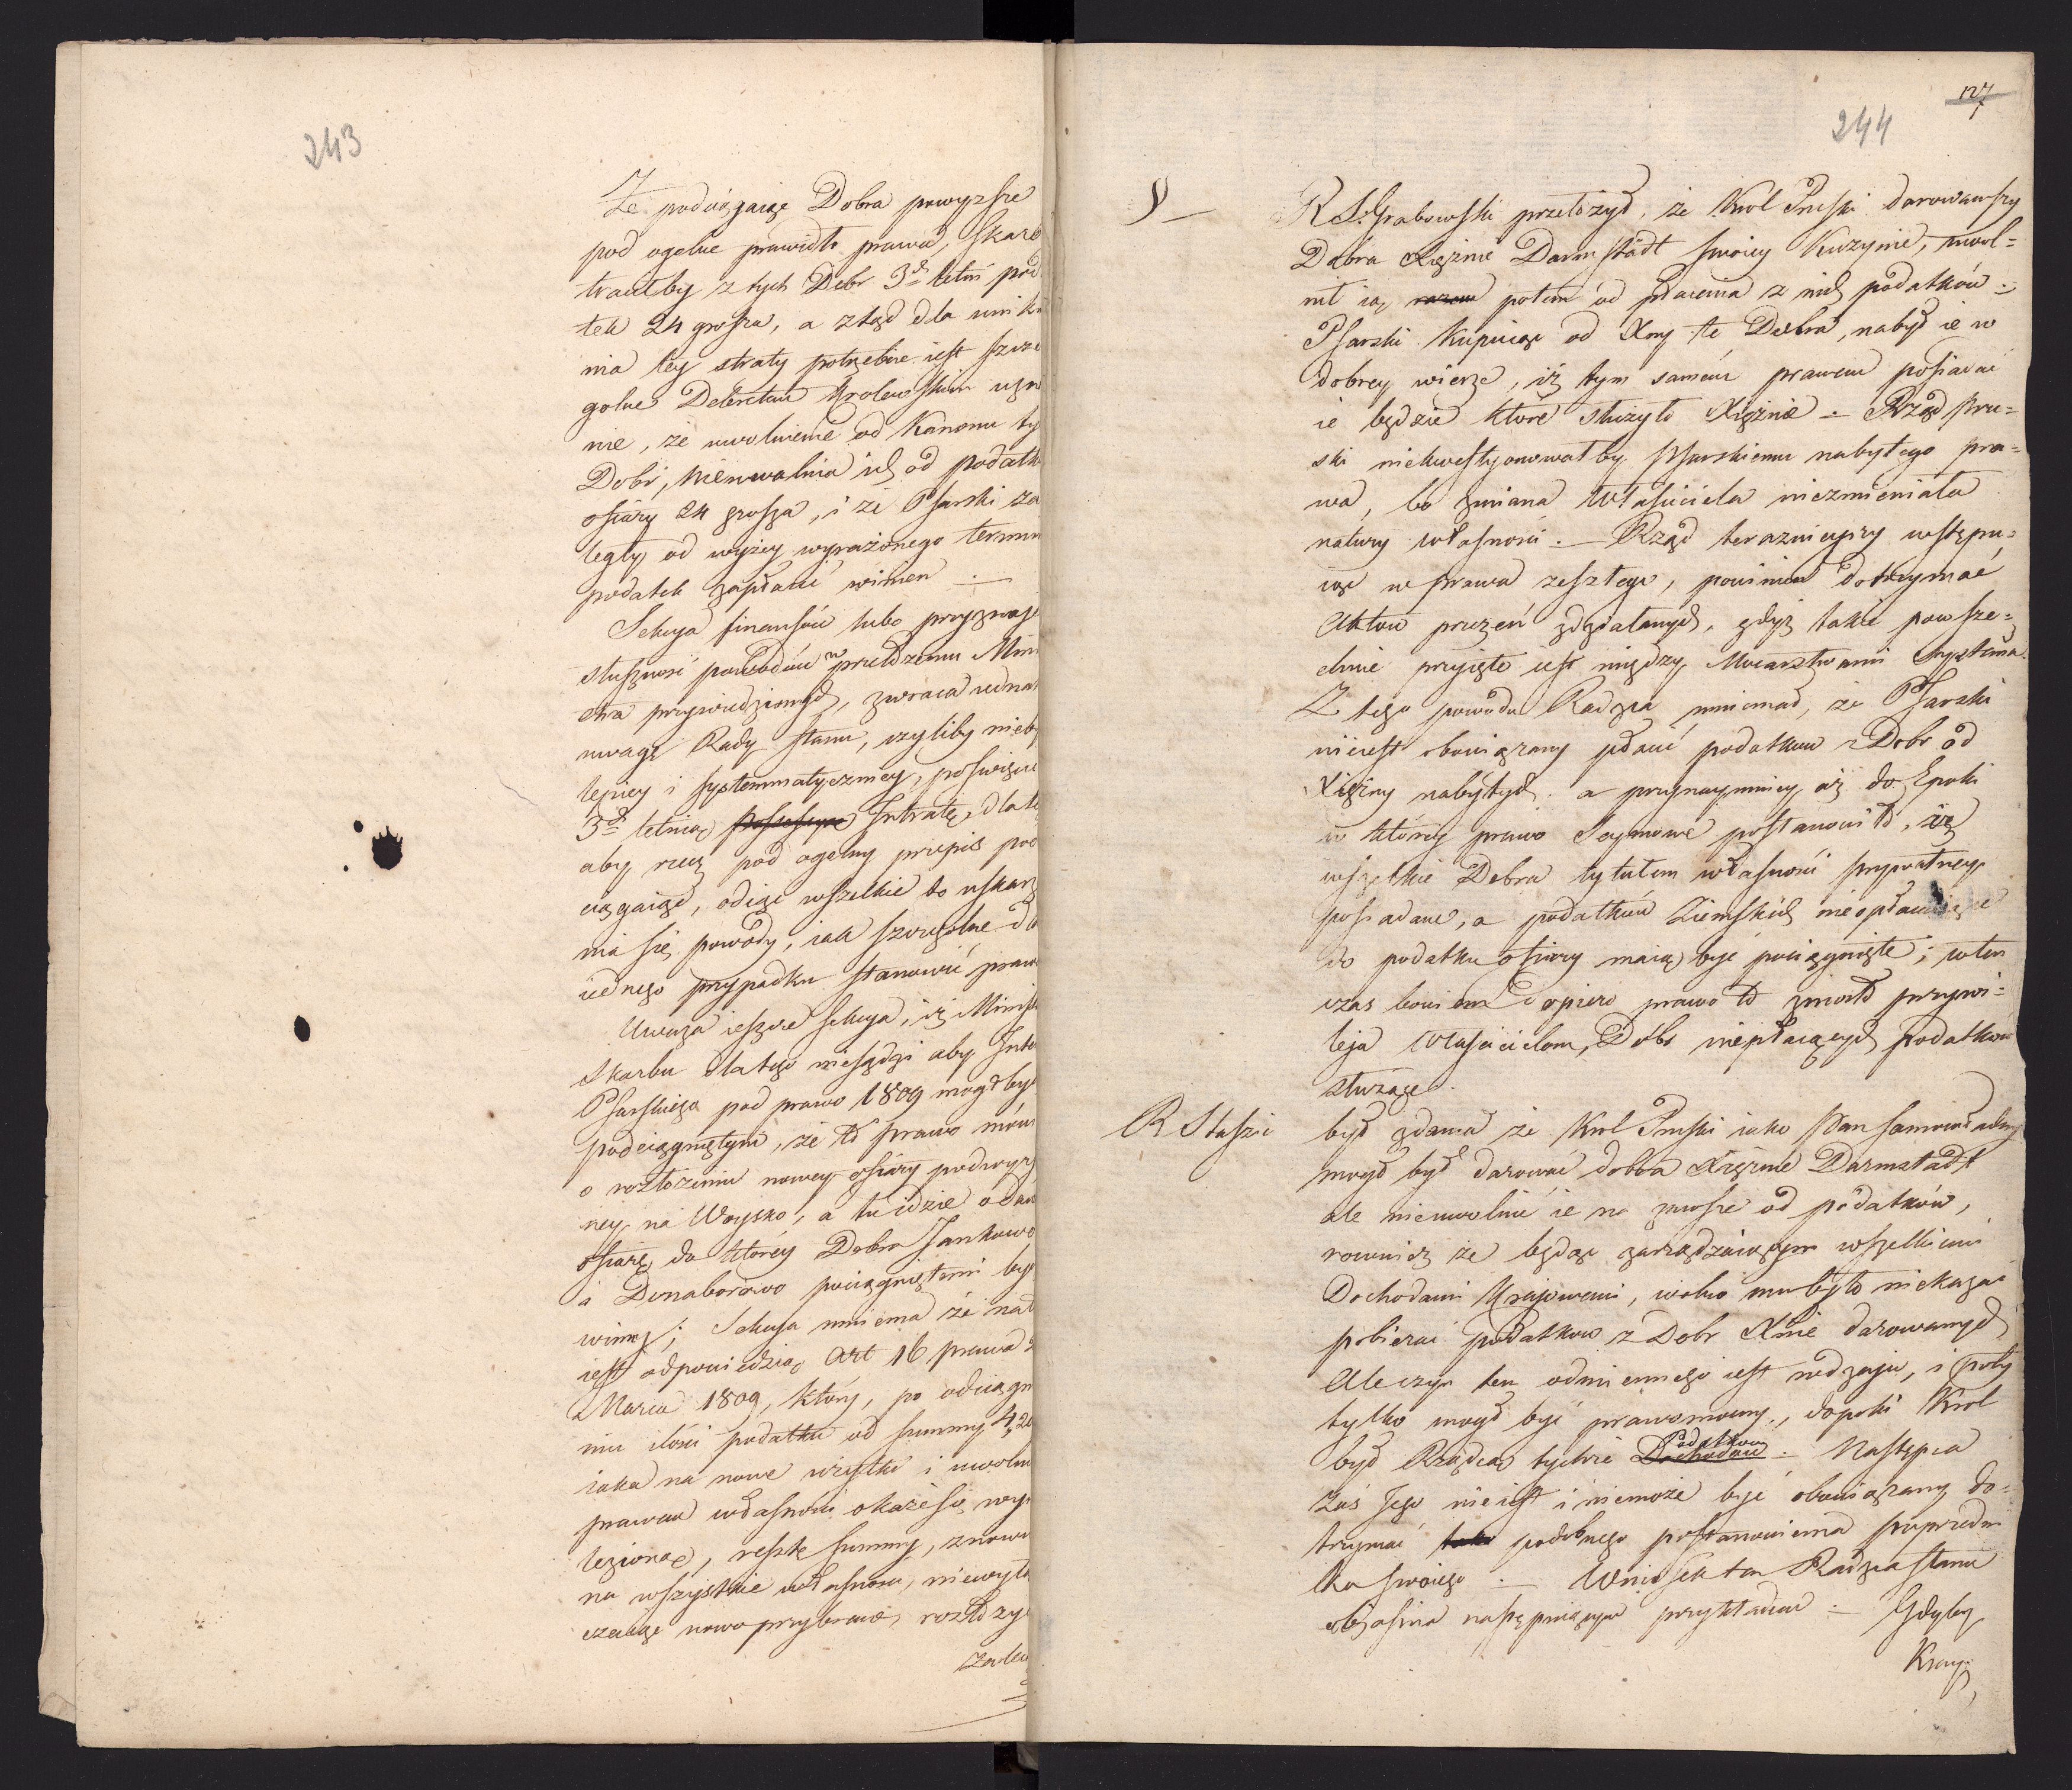 243
Że podciągaiąc Dobra powyższe
pod ogolne prawidło prawa, Skarb
traciłby z tych Dobr 3ch letni pod
tek 24 grosza, a ztąd dla unikn
nia tey straty potrzebne iest szcze
golne Dekretem Krolewskim uzn
nie, że uwolnienie od Kanonu ty
Dobr, nieuwalnia ich od podatk
ofiary 24 grosza, i że Psarski za
legły od wyżey wyrażonego termin
podatek zapłacić winien .—
Sekcya finansów lubo przyznaie
słuszność powodów w przełożeniu Mini
stra przywiedzionych, zwraca iednak
uwagę Rady Stanu, czyliby nieby
lepiey i systemmatyczniey, poświęcić
3ch letnią Intratę, dla te
aby rzecz pod ogolny przepis pod
ciągaiąc, odiąć wszelkie do uskarż
nia się powody, iak szczegolne dla
iednego przypadku stanowić prawo
Uważa ieszcze Sekcya, iż Minist
Skarbu dlatego niesądzi aby Inte
Psarskiego pod prawo 1809 mogł by
podciągniętym, że to prawo mówi
o rozłożeniu nowey ofiary podwyż
ney na Woysko, a tu idzie o daw
ofiarę, do którey Dobra Jankowo
a Donaborowo pociągniętemi być
winny; Sekcya mniema że na to
iest odpowiedzią Art 16 prawa z
Marca 1809, który, po odciągn
niu ilości podatku od summy 4,20
iaka na nowe wzięte i uwoln
prawem własności okaże się wy
lezioną, resztę summy, znowu
na wszystkie własności, niewyłą
czaiąc nowo przybranie, rozłoży
zale
127
244
R S. Grabowski przełożył, że Krol Pruski darowawszy
Dobra Xiężnie Darmstädt swoiey Kuzynie, uwol=
nił ią, razem potem od płacenia z nich podatków .—
Psarski kupuiąc od Xny te Dobra, nabył ie w
dobrey wierze, iż tym samém prawem posiadać
ie będzie które służyło Xiężnie .— Rząd pru=
ski niekwestyonowałby Psarskiemu nabytego pra=
wa, bo zmiana Właściciela niezmieniała
natury własności .— Rząd teraznieyszy wstępu=
iąc w prawa zeszłego, powinien dotrzymać
Aktów przezeń zdziałanych, gdyż takie powsze=
chnie przyięte iest między Mocarstwami Systema.
Z tego powodu Radzca mniemał, że Psarski
nieiest obowiązany płacić podatków z Dobr od
Xiężny nabytych . a przynaymniey aż do Epoki
w którey prawo Seymowe postanowiło, że
wszelkie Dobra tytułem własności prywatney
posiadane, a podatków Ziemskich nieopłacaiące
do podatku ofiary maią być pociągnięte; wten
czas bowiem dopiero prawo to zniosło przywi=
leja Właścicielom, Dobr niepłacących podatków
służące .
R Staszic był zdania że Krol Pruski iako Pan samowładny
mogł był darować dobra Xiężnie Darmstädt
ale nieuwolnić ie na zawsze od podatków,
rownież że będąc zarządzaiącym wszelkiemi
Dochodami Kraiowemi, wolno mu było niekazać
pobierać podatkow z Dobr Xnie darowanych
Ale czyn ten odmiennego iest rodzaju, i poty
tylko mogł być prawomocny, dopoki Krol
był Rządcą tychże Dochodów Podatkow .— Następca
zaś Jego nieiest i niemoże być obowiązany do=
trzymać podobnego postanowienia poprzedni
ka swoiego .— Wniosek ten Radzca Stanu
obiaśnia następuiącym przykładem .— Gdyby
Kray